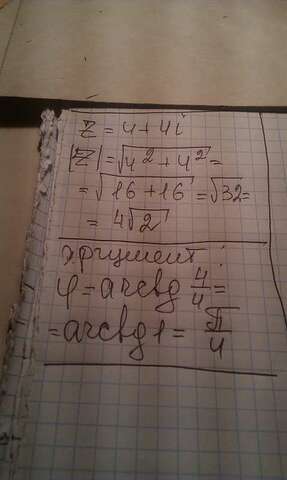 Z = 4 + 4i
|Z| = √4² + 4² =
= √16 + 16 = √32 =
= 4√2
аргумент:
φ = arctg 4/4 =
= arctg 1 = π/4